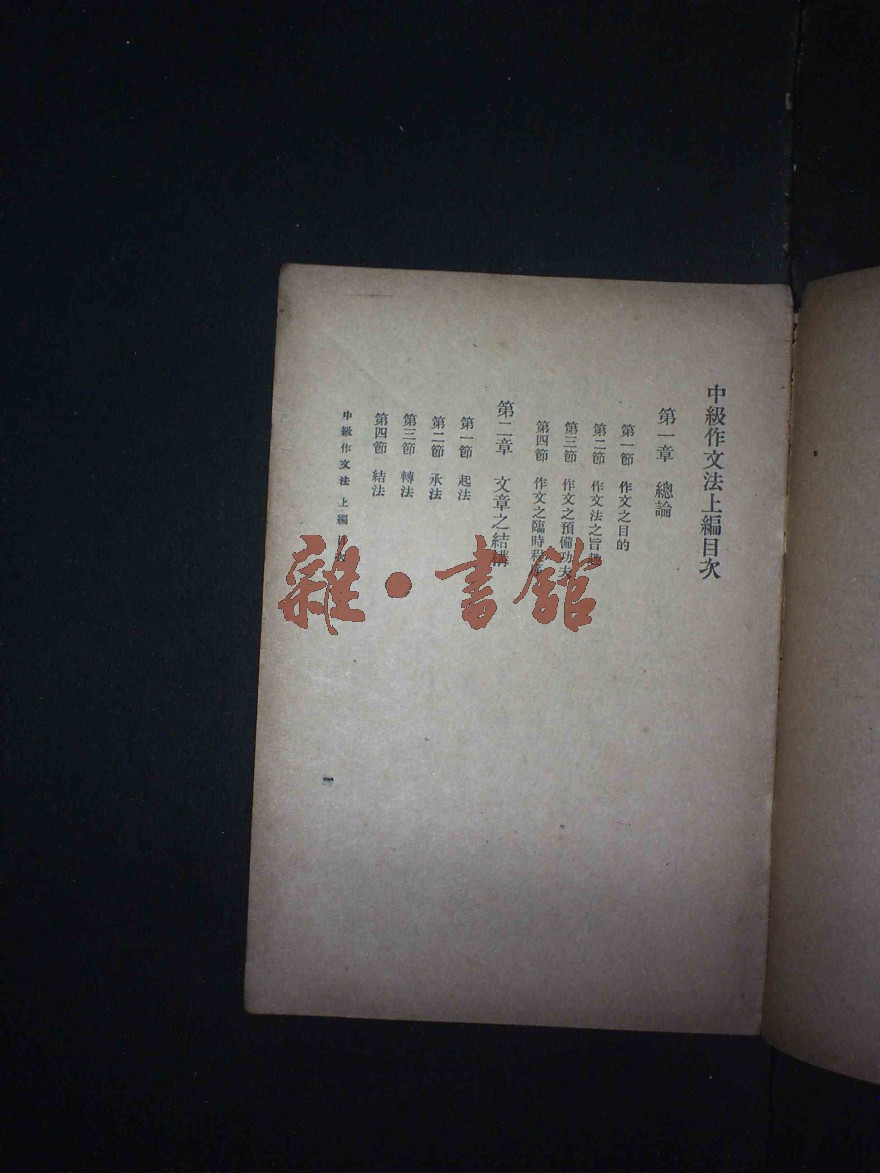 中級作文法上編目次
第一章 總論
第一節 作文之目的
第二節 作文法之旨趣
第三節 作文之預備功夫
第四節 作文之臨時程序
第二章 文章之結構
第一節 起法
第二節 承法
第三節 轉法
第四節 結法
中級作文法 上編目次
一
雜·書館